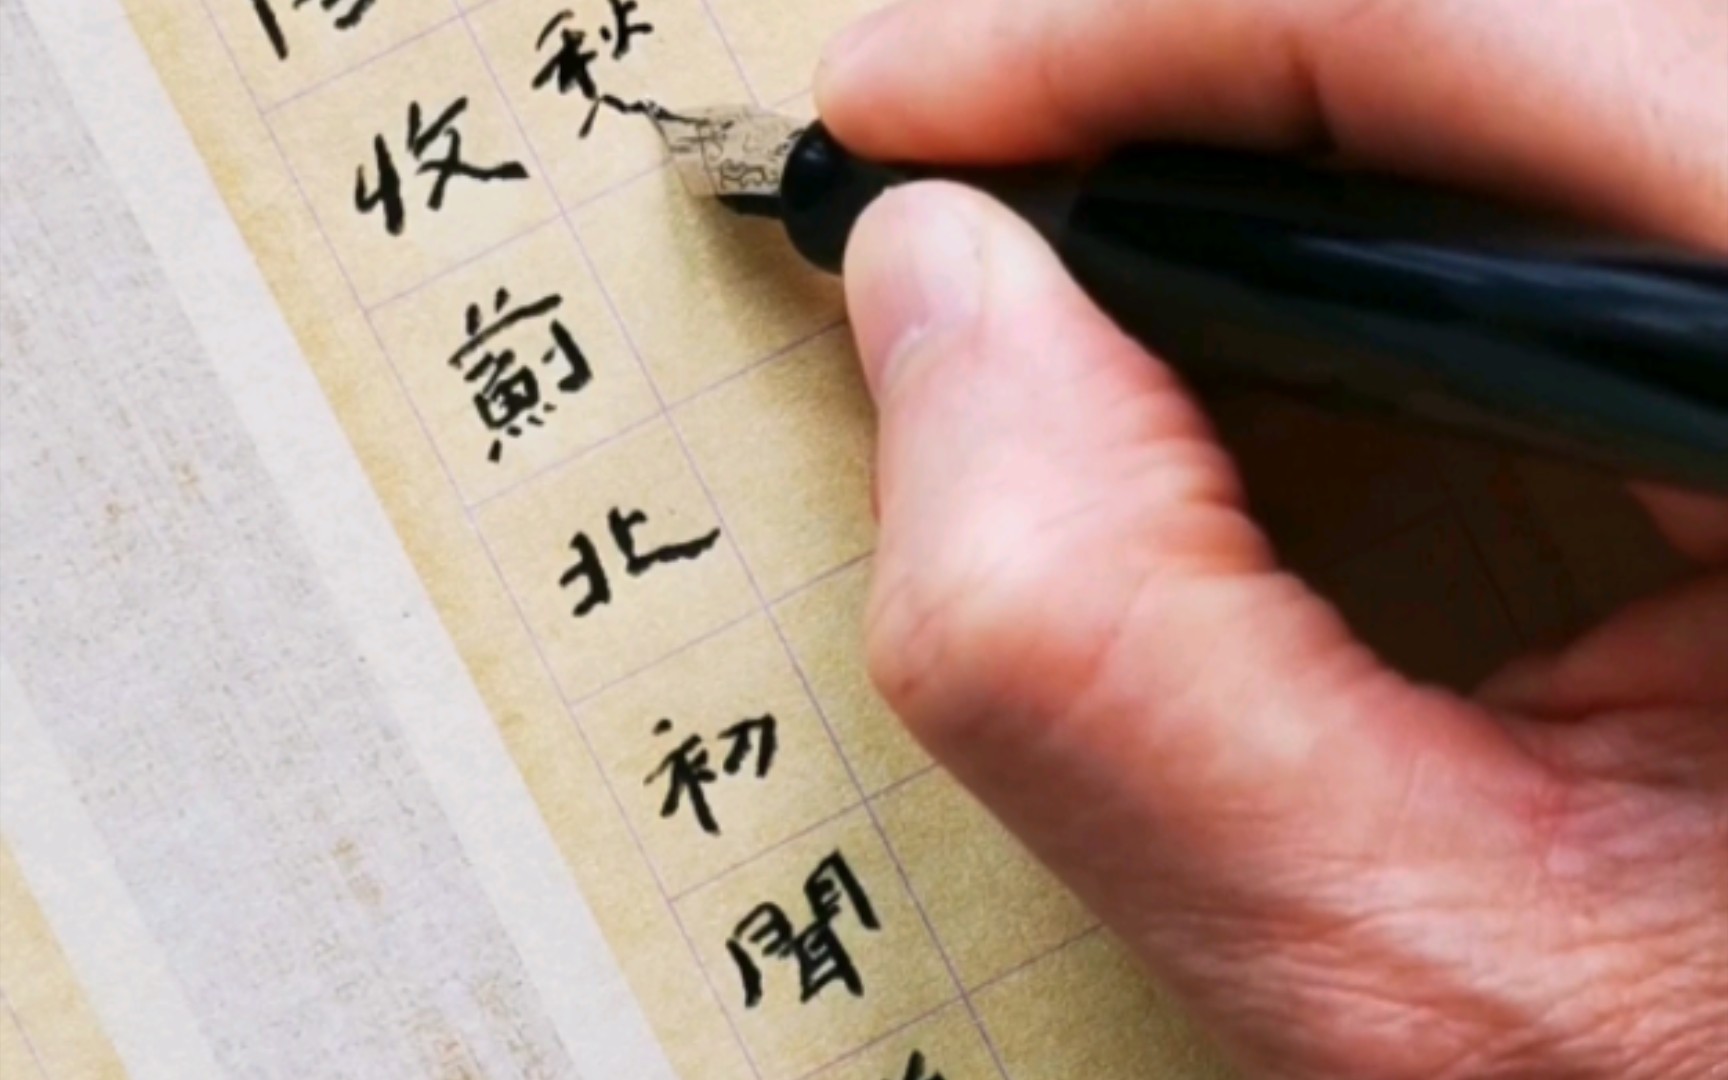 收薊北初聞
秋